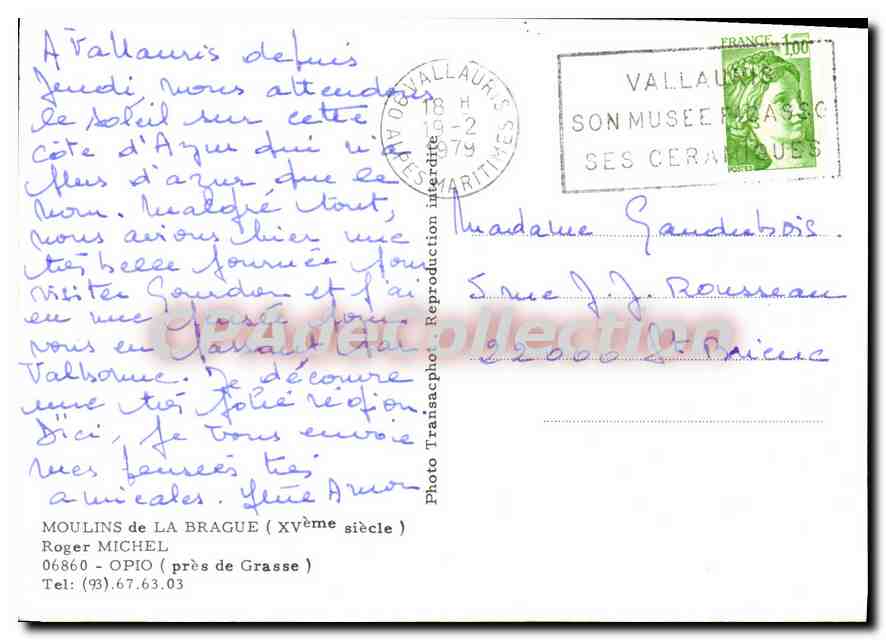 A Vallauris depuis
Jeudi, nous attendons
le soleil sur cette
côte d'Azur qui n'a
plus d'azur que le
nom. Malgré tout,
nous avions hier une
très belle journée pour
visiter Gourdon et j'ai
eu une pensée pour
vous en passant par
Valbonne. Je découvre
une très jolie région.
D'ici, je vous envoie
mes pensées très
amicales.
MOULINS de LA BRAGUE ( XVème siècle )
Roger MICHEL
06860 - OPIO ( près de Grasse )
Tel: (93).67.63.03
Photo Transacphot. Reproduction interdite
06 VALLAURIS
18 H
19-2
1979
ALPES-MARITIMES
VALLAURIS
SON MUSEE PICASSO
SES CERAMIQUES
FRANCE 1,00
POSTES
Madame Gaudubois.
5 rue J.J. Rousseau
22000 St Brieuc
CPAdeCollection